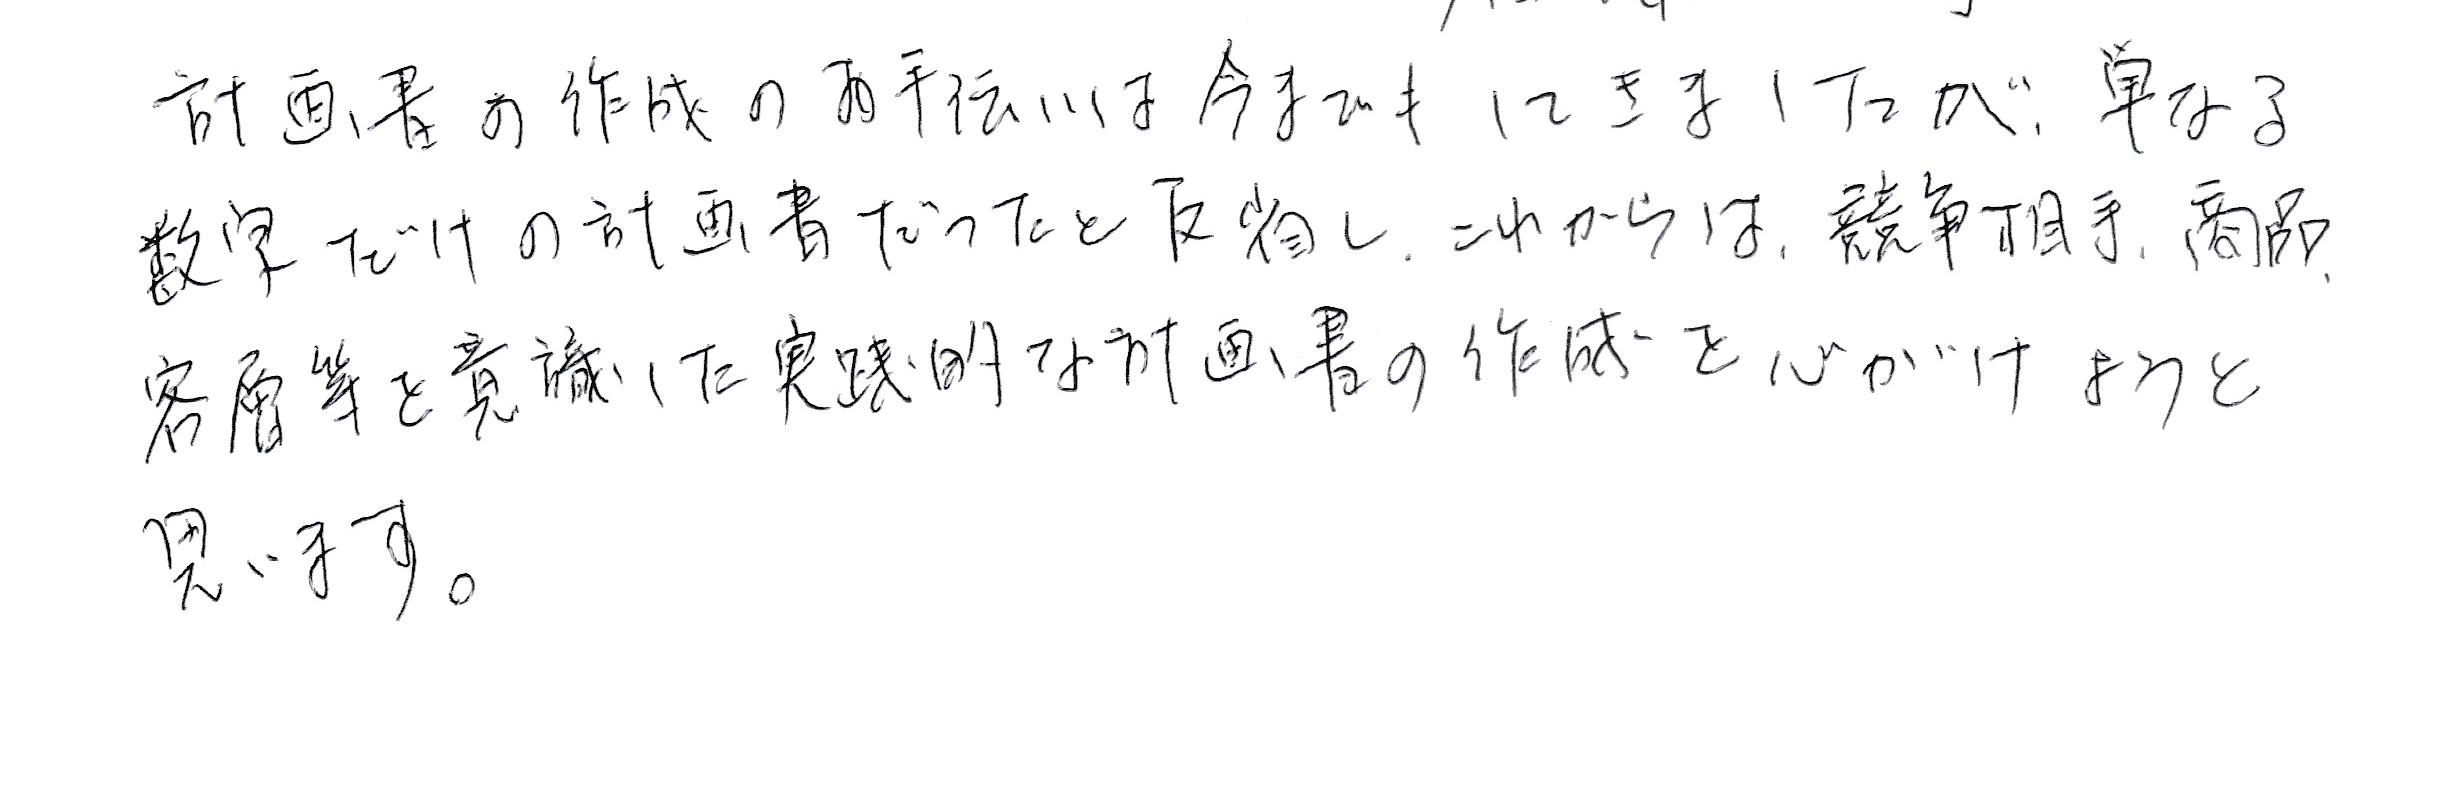 計画書の作成のお手伝いは今までもしてきましたが、単なる
数字だけの計画書だったと反省し、これからは、競争相手、商品、
客層等を意識した実践的な計画書の作成を心がけようと
思います。